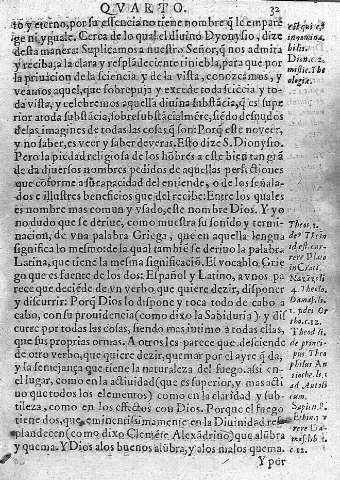 QVARTO. 32
to y eterno, por su essencia no tiene nombre q̃ le empare
ge ni yguale. Cerca de lo qual el diuino Dyonysio, dize
desta manera: Suplicamos a nuestro Señor, q̃ nos admita
y reciba, a la clara y resplãdeciente tiniebla, para que por
la priuacion de la sciencia y de la vista, conozcamos, y
veamos aquel, que sobrepuja y excede toda sciẽcia y to
da vista, y celebremos aquella diuina substãcia, q̃ es supe
rior a toda substãcia, sobresubstãcialmẽte, siẽdo desnudos
de las imagines de todas las cosas q̃ son: Porq̃ este no veer,
y no saber, es veer y saber deueras. Esto dize S. Dionysio.
Pero la piedad religiosa de los hõbres a este bien tan grã
de da diuersos nombres pedidos de aquellas perfectiones
que cõforme a su capacidad del entiende, o de los señala-
dos e illustres beneficios que del recibe: Entre los quales
es nombre mas comun y vsado, este nombre Dios. Y yo
no dudo que se deriue, como nuestra su sonido y termi-
nacion, de vna palabra Griega, que en aquella lengua
significa lo mesmo: de la qual tambiẽ se deriuo la palabra
Latina, que tiene la mesma significació. El vocablo Grie
go que es fuente de los dos: Español y Latino, a vnos pa
rece que deciẽde de vn verbo que quiere dezir, disponer
y discurrir: Porq̃ Dios lo dispone y toca todo de cabo a
cabo, con su prouidencia (como dixo la Sabiduria) y dis
curre por todas las cosas, siendo mas intimo a todas ellas,
que sus proprias ormas. A otros les parece que descíende
de otro verbo, que quiere dezir, quemar por el ayre q̃ da,
y la semejança que tiene la naturaleza del fuego: assi en
el lugar, como en la actiuidad (que es superior, y mas acti
uo que todos los elementos) como en la claridad y sub-
tileza, como en los effectos con Dios. Porque el fuego
tiene dos, que eminentissimamente en la Diuinidad res
plandecen (como dixo Clemẽte Alexãdrino) que alũbra
y quema. Y Dios alos buenos alũbra, y alos malos quema.
Y por
est qui est
innomina
bilis.
Dion. c. 2
mistic. The
ologiæ.
Nazanz.
4. Theolo.
Damas. li.
1. de
tho. c. 12.
Theod li.
de princi-
pijs Theo
philus An
tioche. li. 1
ad Autoli
cum.
Sapien. 8.
c. 12.